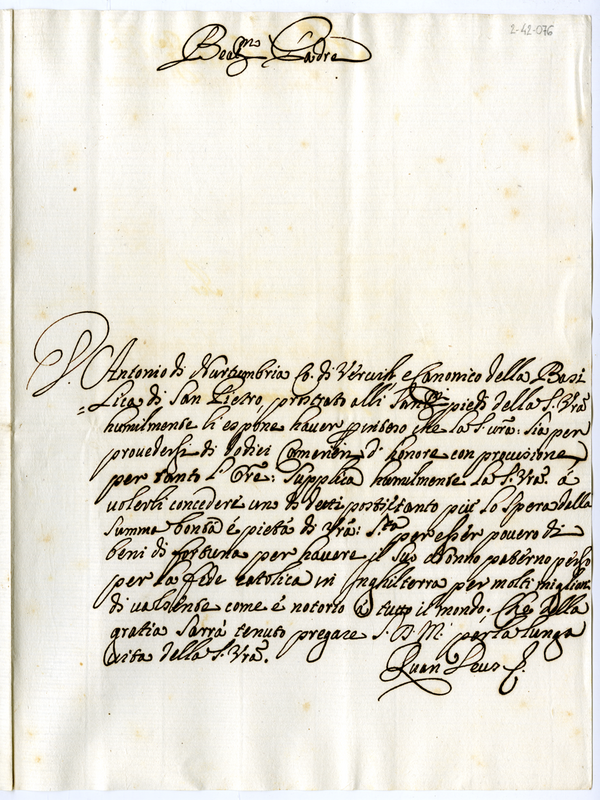 2-42-076
Beat.mo Padre
D. Antonio di Nortumbria Co. di Vervich e Canonico della Basi
=lica di San Pietro, prostrato alli San.mi piedi della S. Vra
humilmente li espone haver inteso che la S. vra: sia per
provedersi di dodici Camerieri d'honore con provisione
per tanto l'Ore: supplica humilmente la S. Vra. á
volerli concedere uno di detti posti tanto piú lo spera della
summa bontá é pietá di Vra: S.tá per esser povero di
beni di fortuna per havere il suo Nonno paterno perso
per la fede catolica in Inghilterra per molti migliara
di valsente come é notorio á tutto il mondo; Che della
gratia sarrá tenuto pregare S. D. M. per la lunga
vita della S. Vra.
Quam Deus &.